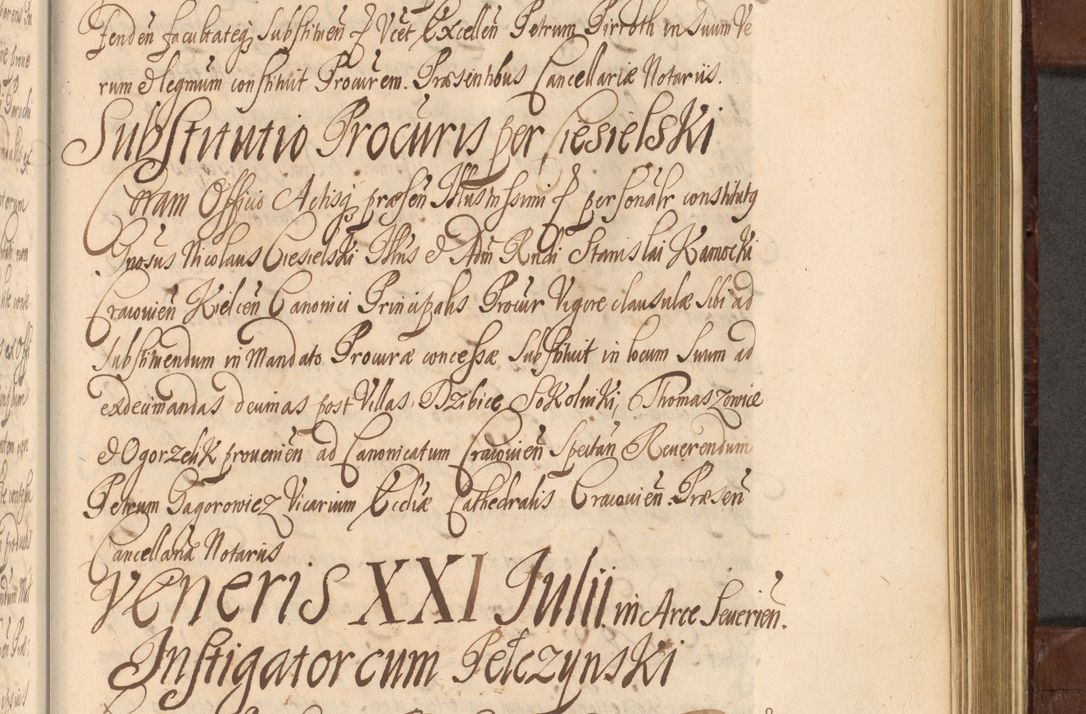 Tenden facultateq substituen et Vcet Excellen Petrum Pirtoth in suum Ve
rum et legmum constituit Procurem. Præsentibus Cancellariæ Notariis.
Substitutio Procuris per Ciesielski
Coram Officio Actisq præsen Illustrissimi et personalr constitutq
Gnosus Nicolaus Ciesielski Illris et Adm Rndi Stanislai Kamocki
Cracouien Kielcen Canonici Principalis Procur Vigore clausulæ sibi ad
substituendum in Mandato Procuræ concessæ Substituit in locum suum ad
exdecimandas decimas post Villas Dzibice Sokolniki, Thomaszowice
et Ogorzelik prouenien ad Canonicatum Cracouien spectan Reuerendum
Petrum Gagorowicz Vicarium Eccliæ Cathedralis Cracouien. Præsen
Cancellariæ Notariis
Veneris XXI Julii in Arce Seuerien.
Instigator cum Pełczynski